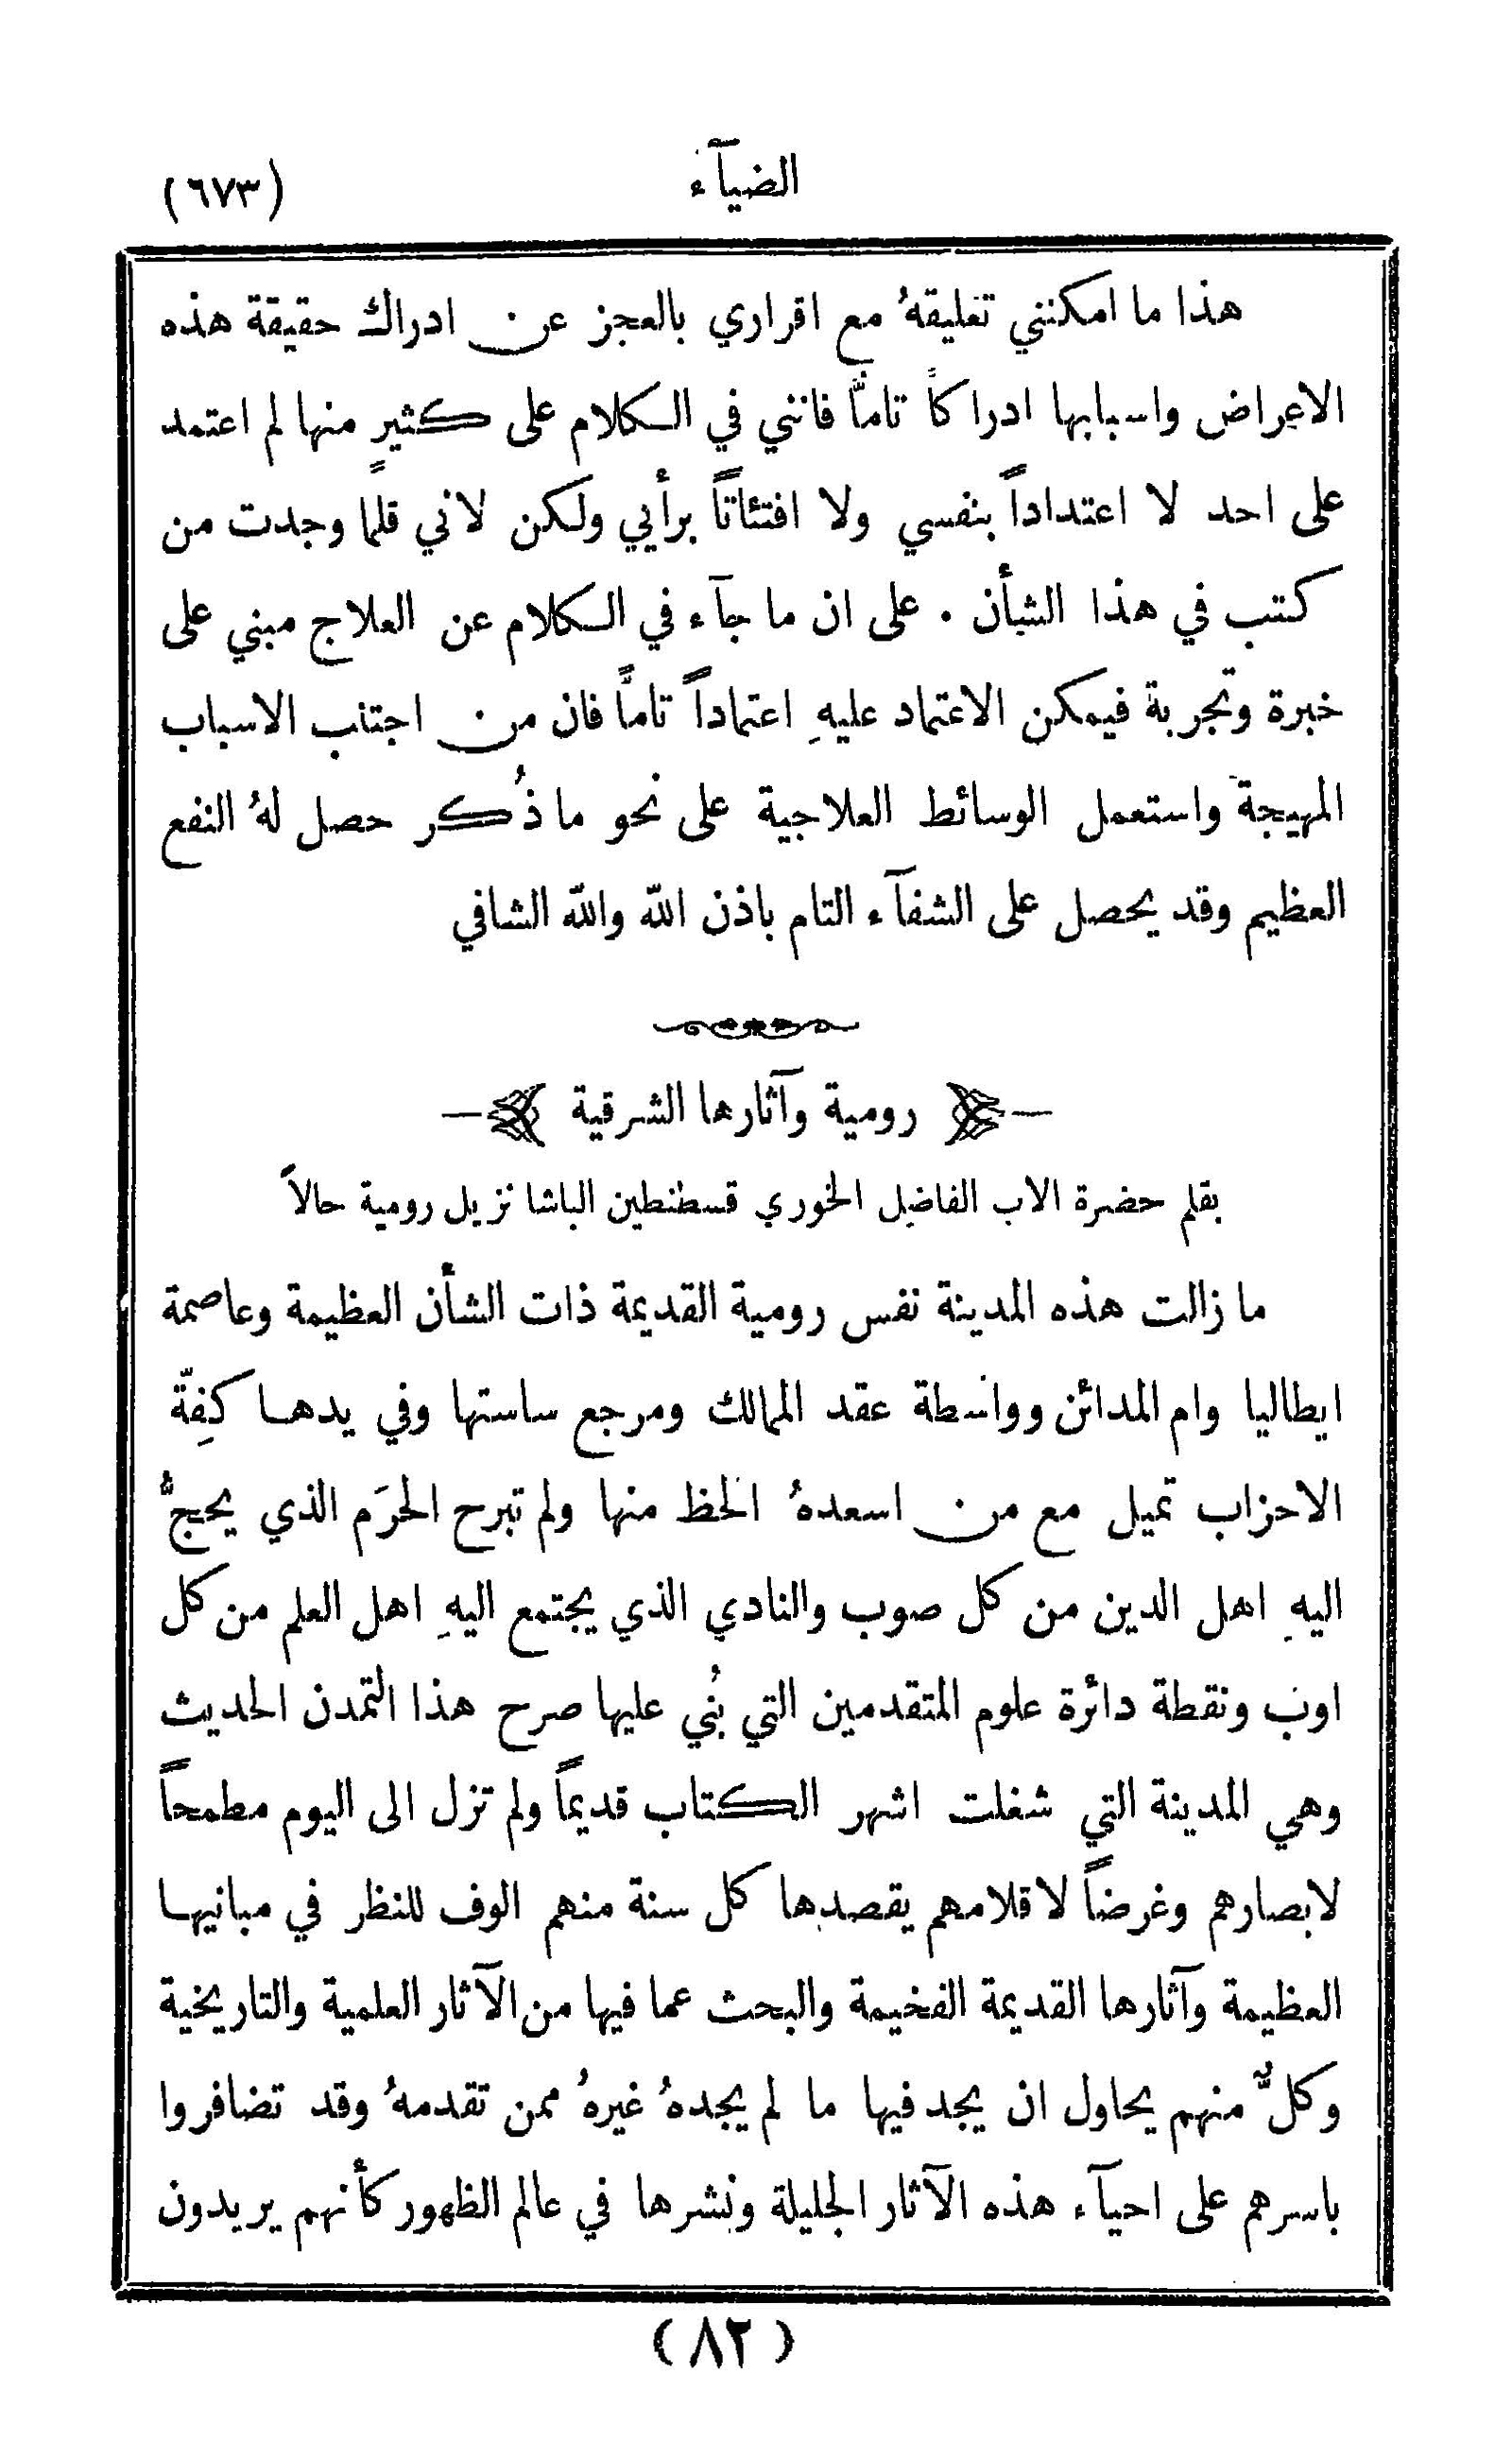 الضيآء
(٦٧٣)
هذا ما امكنني تعليقهُ مع اقراري بالعجز عن ادراك حقيقة هذه
الاعراض واسبابها ادراكاً تامّاً فانني في الكلام على كثيرٍ منها لم اعتمد
على احد لا اعتداداً بنفسي ولا افتئاتاً برأيي ولكن لاني قلما وجدت من
كتب في هذا الشأن . على ان ما جآء في الكلام عن العلاج مبني على
خبرة وتجربة فيمكن الاعتماد عليهِ اعتماداً تامّاً فان من اجتنب الاسباب
المهيجة واستعمل الوسائط العلاجية على نحو ما ذُكر حصل لهُ النفع
العظيم وقد يحصل على الشفآء التام باذن الله والله الشافي
رومية وآثارها الشرقية
بقلم حضرة الاب الفاضل الخوري قسطنطين الباشا نزيل رومية حالاً
ما زالت هذه المدينة نفس رومية القديمة ذات الشأن العظيمة وعاصمة
ايطاليا وام المدائن وواسطة عقد الممالك ومرجع ساستها وفي يدها كِفّة
الاحزاب تميل مع من اسعدهُ الحظ منها ولم تبرح الحرَم الذي يحجّ
اليهِ اهل الدين من كل صوب والنادي الذي يجتمع اليهِ اهل العلم من كل
اوب ونقطة دائرة علوم المتقدمين التي بُني عليها صرح هذا التمدن الحديث
وهي المدينة التي شغلت اشهر الكتاب قديماً ولم تزل الى اليوم مطمحاً
لابصارهم وغرضاً لاقلامهم يقصدها كل سنة منهم الوف للنظر في مبانيها
العظيمة وآثارها القديمة الفخيمة والبحث عما فيها من الآثار العلمية والتاريخية
وكلٌّ منهم يحاول ان يجد فيها ما لم يجدهُ غيرهُ ممن تقدمهُ وقد تضافروا
باسرهم على احيآء هذه الآثار الجليلة ونشرها في عالم الظهور كأنهم يريدون
(٨٢)